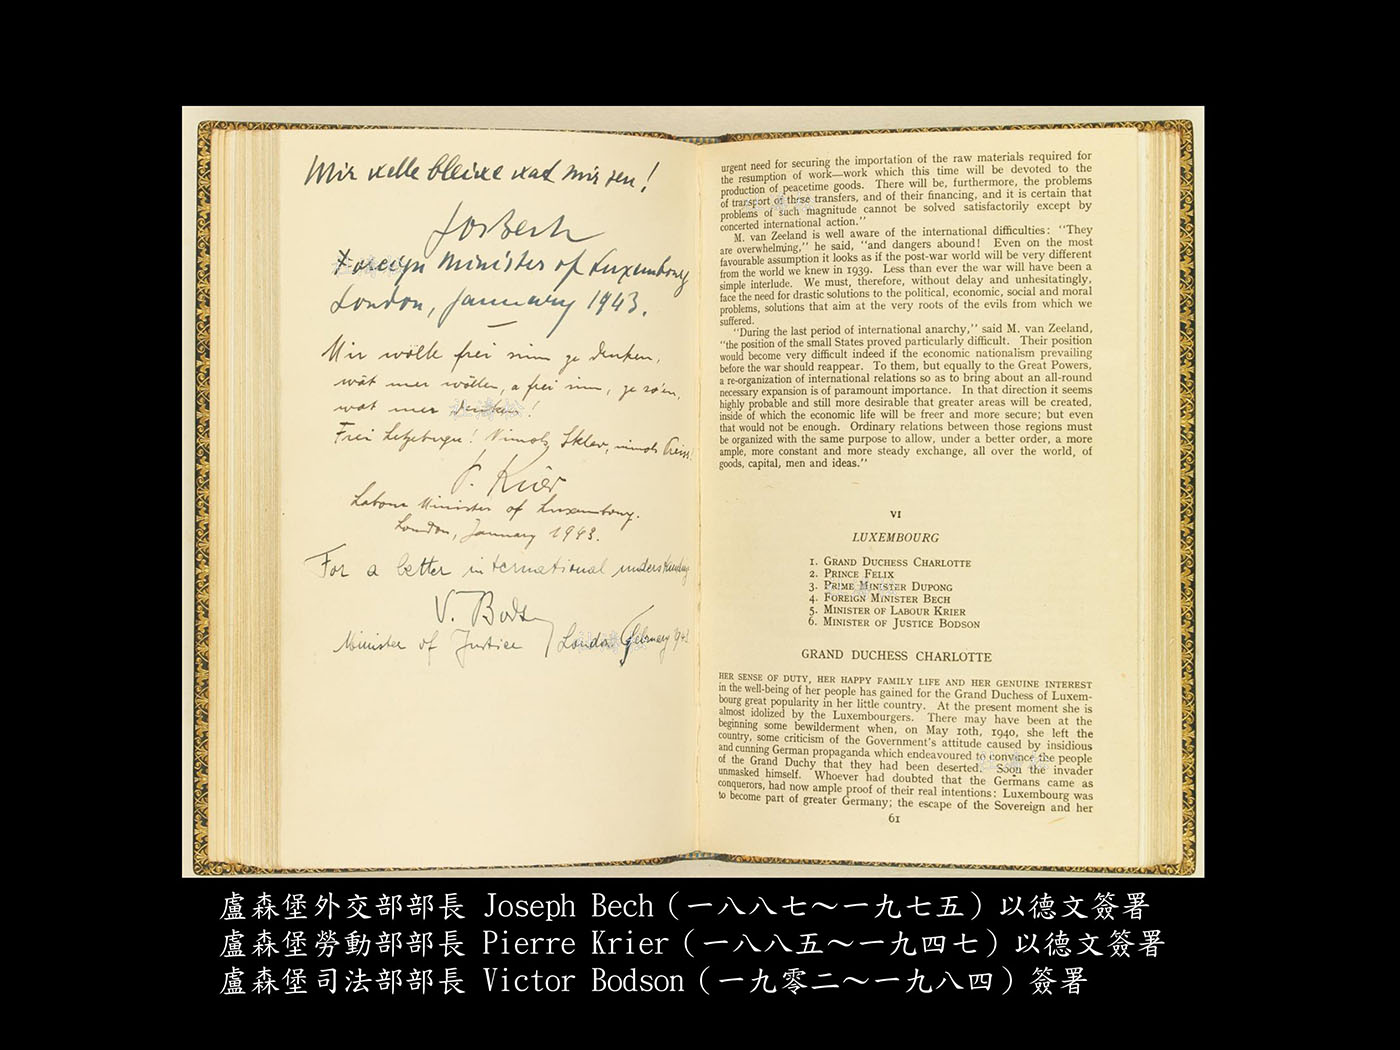 Mir welle bleiwe wat mir sen!
Jos Bech
Foreign Minister of Luxembourg
London, January 1943.
Mir wölle frei sinn ze denken,
wat mer wöllen, a frei sinn, ze so'en,
wat mer denken!
Frei Letzeburger! Niemols Sklav, niemols Preiss.
P. Krier
Labour Minister of Luxembourg.
London, January 1943.
For a better international understanding
V. Bodson
Minister of Justice / London February 194
urgent need for securing the importation of the raw materials required for
the resumption of work—work which this time will be devoted to the
production of peacetime goods. There will be, furthermore, the problems
of transport of these transfers, and of their financing, and it is certain that
problems of such magnitude cannot be solved satisfactorily except by
concerted international action."
M. van Zeeland is well aware of the international difficulties: "They
are overwhelming," he said, "and dangers abound! Even on the most
favourable assumption it looks as if the post-war world will be very different
from the world we knew in 1939. Less than ever the war will have been a
simple interlude. We must, therefore, without delay and unhesitatingly,
face the need for drastic solutions to the political, economic, social and moral
problems, solutions that aim at the very roots of the evils from which we
suffered.
"During the last period of international anarchy," said M. van Zeeland,
"the position of the small States proved particularly difficult. Their position
would become very difficult indeed if the economic nationalism prevailing
before the war should reappear. To them, but equally to the Great Powers,
a re-organization of international relations so as to bring about an all-round
necessary expansion is of paramount importance. In that direction it seems
highly probable and still more desirable that greater areas will be created,
inside of which the economic life will be freer and more secure; but even
that would not be enough. Ordinary relations between those regions must
be organized with the same purpose to allow, under a better order, a more
ample, more constant and more steady exchange, all over the world, of
goods, capital, men and ideas."
VI
LUXEMBOURG
1. GRAND DUCHESS CHARLOTTE
2. PRINCE FELIX
3. PRIME MINISTER DUPONG
4. FOREIGN MINISTER BECH
5. MINISTER OF LABOUR KRIER
6. MINISTER OF JUSTICE BODSON
GRAND DUCHESS CHARLOTTE
HER SENSE OF DUTY, HER HAPPY FAMILY LIFE AND HER GENUINE INTEREST
in the well-being of her people has gained for the Grand Duchess of Luxem-
bourg great popularity in her little country. At the present moment she is
almost idolized by the Luxembourgers. There may have been at the
beginning some bewilderment when, on May 10th, 1940, she left the
country, some criticism of the Government's attitude caused by insidious
and cunning German propaganda which endeavoured to convince the people
of the Grand Duchy that they had been deserted. Soon the invader
unmasked himself. Whoever had doubted that the Germans came as
conquerors, had now ample proof of their real intentions: Luxembourg was
to become part of greater Germany; the escape of the Sovereign and her
61
盧森堡外交部部長 Joseph Bech（一八八七～一九七五）以德文簽署
盧森堡勞動部部長 Pierre Krier（一八八五～一九四七）以德文簽署
盧森堡司法部部長 Victor Bodson（一九零二～一九八四）簽署